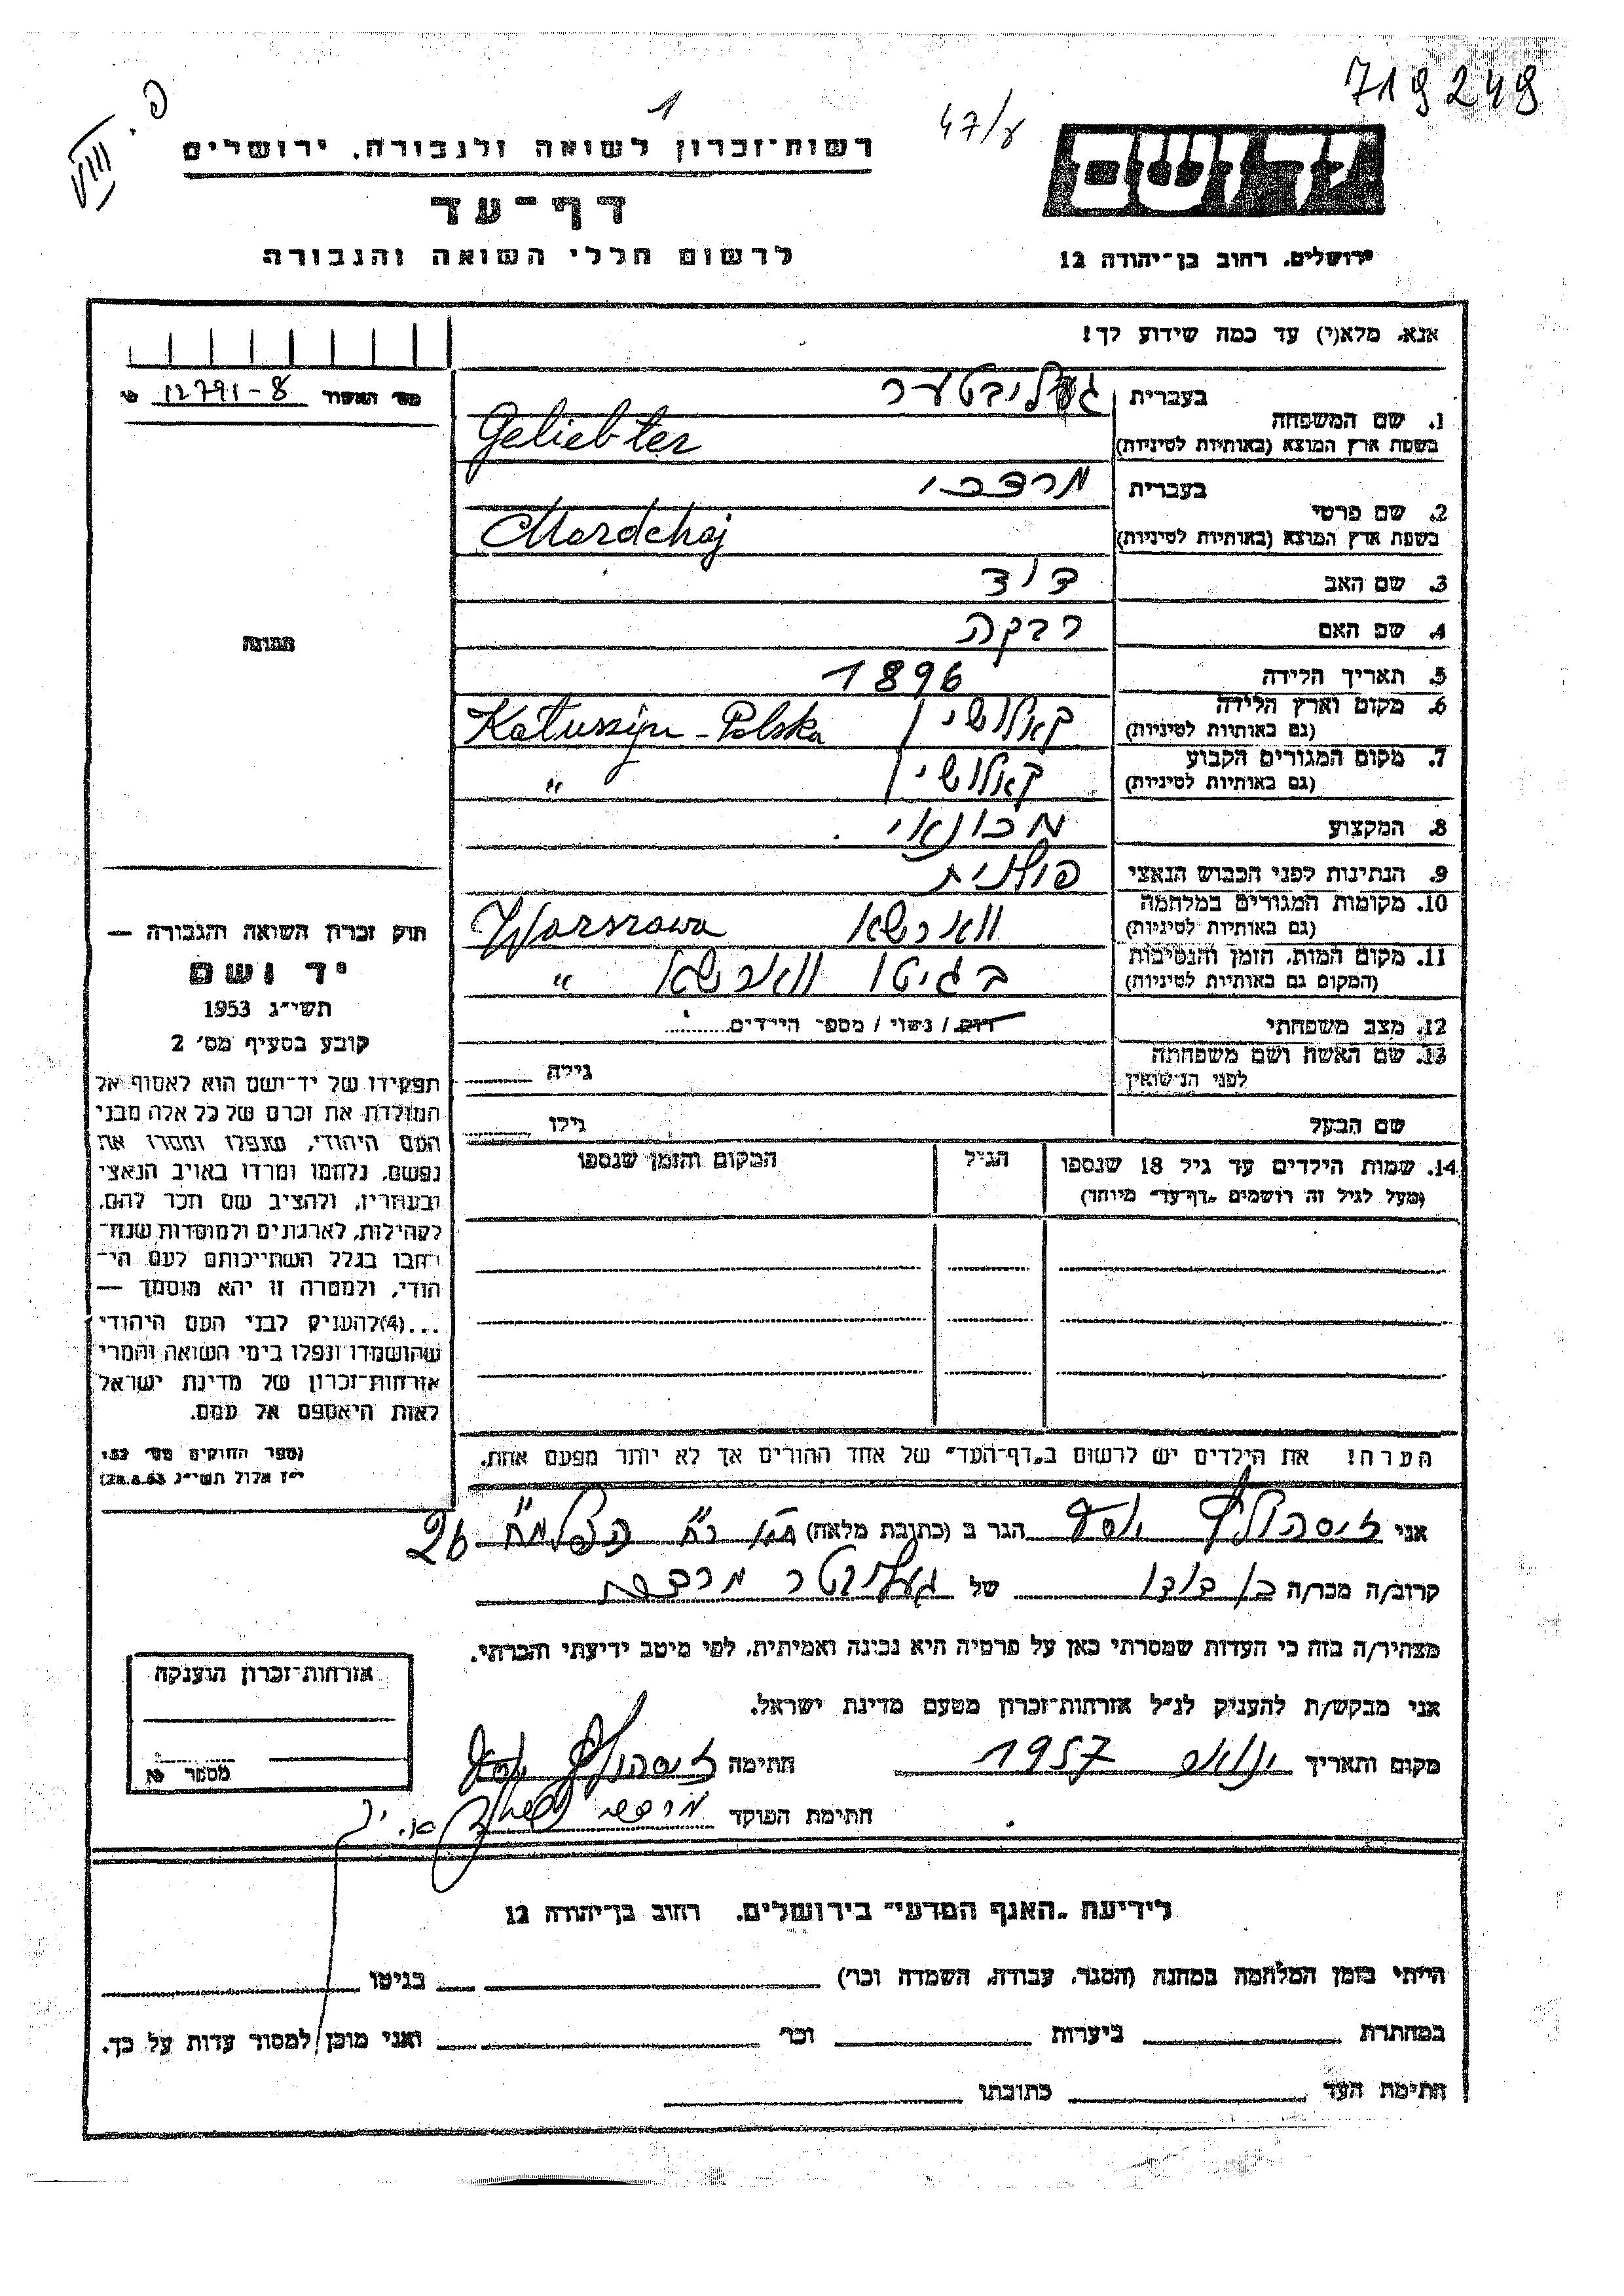 719249
47/ע
1
פ. VIII
יד ושם
רשות־זכרון לשואה ולגבורה, ירושלים
דף־עד
לרשום חללי השואה והגבורה
ירושלים, רחוב בן־יהודה 12
אנא, מלא(י) עד כמה שידוע לך!
מס׳ האשור 12791-8
בעברית געליבטער
1. שם המשפחה
בשפת ארץ המוצא (באותיות לטיניות) Geliebter
בעברית מרדכי
2. שם פרטי
בשפת ארץ המוצא (באותיות לטיניות) Mordchaj
3. שם האב דוד
4. שם האם רבקה
5. תאריך הלידה 1896
6. מקום וארץ הלידה קאלושין Katuszyn - Polska
(גם באותיות לטיניות)
7. מקום המגורים הקבוע קאלושין "
(גם באותיות לטיניות)
8. המקצוע מכונאי.
9. הנתינות לפני הכבוש הנאצי פולנית
10. מקומות המגורים במלחמה ווארשא Warszawa
(גם באותיות לטיניות)
11. מקום המות, הזמן והנסיבות בגיטו ווארשא "
(המקום גם באותיות לטיניות)
12. מצב משפחתי רווק / נשוי / מספר הילדים
13. שם האשה ושם משפחתה
לפני הנישואין גילה
שם הבעל גילו
14. שמות הילדים עד גיל 18 שנספו הגיל המקום והזמן שנספו
(מעל לגיל זה רושמים „דף־עד״ מיוחד)
תמונה
חוק זכרון השואה והגבורה —
יד ושם
תשי״ג 1953
קובע בסעיף מס׳ 2
תפקידו של יד־ושם הוא לאסוף אל
המולדת את זכרם של כל אלה מבני
העם היהודי, שנפלו ומסרו את
נפשם, נלחמו ומרדו באויב הנאצי
ובעוזריו, ולהציב שם וזכר להם,
לקהילות, לארגונים ולמוסדות שנח־
רבו בגלל השתייכותם לעם הי־
הודי, ולמטרה זו יהא מוסמך —
...(4)להעניק לבני העם היהודי
שהושמדו ונפלו בימי השואה והמרי
אזרחות־זכרון של מדינת ישראל
לאות היאספם אל עמם.
(ספר החוקים מס׳ 132
י״ז אלול תשי״ג 28.8.53)
הערה! את הילדים יש לרשום ב„דף־העד״ של אחד ההורים אך לא יותר מפעם אחת.
אני יוסף הגר ב (כתובת מלאה) 26
קרוב/ה מכר/ה בן דודו של געליבטר מרדכי
מצהיר/ה בזה כי העדות שמסרתי כאן על פרטיה היא נכונה ואמיתית, לפי מיטב ידיעתי והכרתי.
אני מבקש/ת להעניק לנ״ל אזרחות־זכרון מטעם מדינת ישראל.
מקום ותאריך 1957 חתימה יוסף
חתימת הפוקד
אזרחות־זכרון הוענקה
מספר
לידיעת „האגף המדעי״ בירושלים, רחוב בן־יהודה 12
הייתי בזמן המלחמה במחנה (הסגר, עבודה, השמדה וכו׳) בגיטו
במחתרת ביערות וכו׳ ואני מוכן למסור עדות על כך.
חתימת העד כתובתו